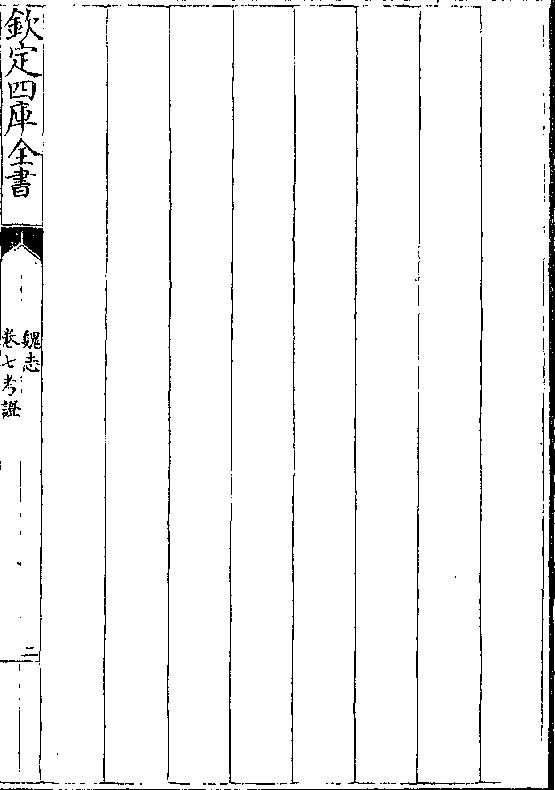 欽定四庫全書
魏志
卷七考證
二